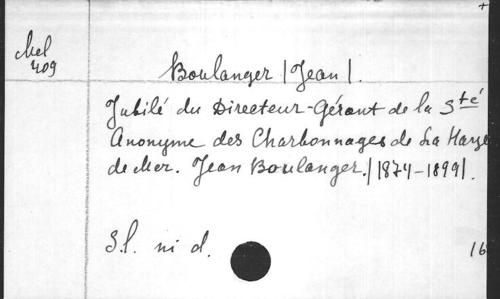 +
Mel
409
Boulanger (Jean).
Jubilé du Directeur-Gérant de la Sté
Anonyme des Charbonnages de La Haye
de Mer. Jean Boulanger. (1874-1899).
S.l. ni d.
16